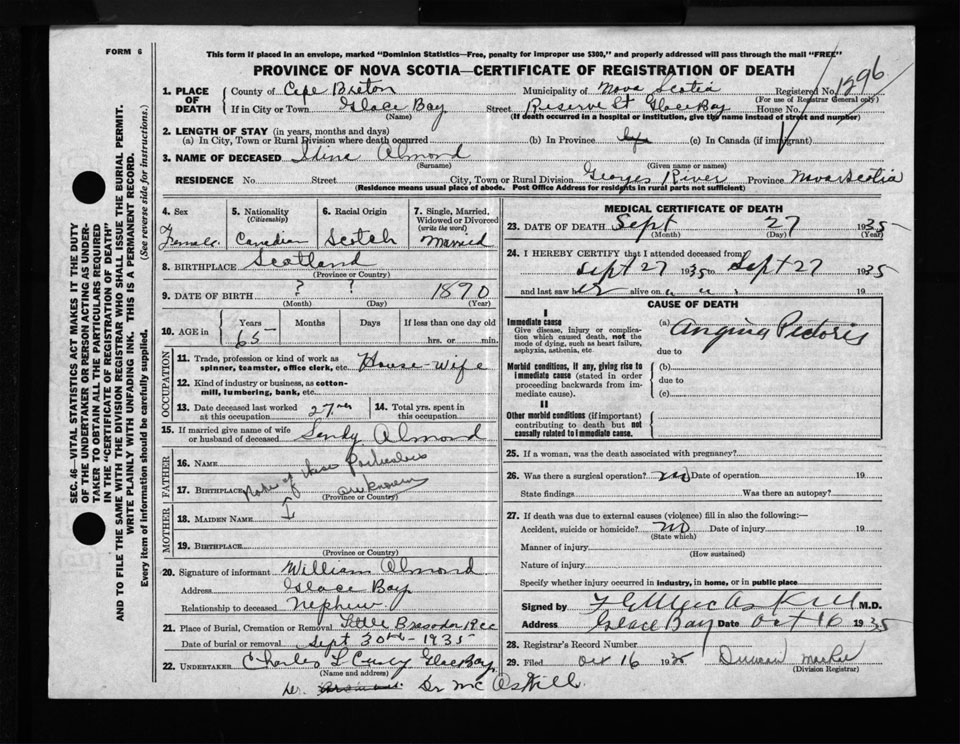 FORM 6
This form if placed in an envelope, marked "Dominion Statistics—Free, penalty for improper use $300," and properly addressed will pass through the mail "FREE"
PROVINCE OF NOVA SCOTIA—CERTIFICATE OF REGISTRATION OF DEATH
1. PLACE OF DEATH
County of Cape Breton Municipality of Nova Scotia Registered No. 1296
(For use of Registrar General only)
If in City or Town Glace Bay Street Reserve St Glace Bay House No.
(Name) (If death occurred in a hospital or institution, give the name instead of street and number)
2. LENGTH OF STAY (in years, months and days)
(a) In City, Town or Rural Division where death occurred (b) In Province life (c) In Canada (if immigrant)
3. NAME OF DECEASED Almond
(Surname) (Given name or names)
RESIDENCE No. Street City, Town or Rural Division Georges River Province Nova Scotia
(Residence means usual place of abode. Post Office Address for residents in rural parts not sufficient)
4. Sex Female
5. Nationality (Citizenship) Canadian
6. Racial Origin Scotch
7. Single, Married, Widowed or Divorced (write the word) Married
8. BIRTHPLACE Scotland
(Province or Country)
9. DATE OF BIRTH ? ? 1870
(Month) (Day) (Year)
10. AGE in Years Months Days If less than one day
65 — hrs. or min.
OCCUPATION
11. Trade, profession or kind of work as spinner, teamster, office clerk, etc. House-Wife
12. Kind of industry or business, as cotton-mill, lumbering, bank, etc.
13. Date deceased last worked at this occupation 27
14. Total yrs. spent in this occupation
15. If married give name of wife or husband of deceased Almond
FATHER
16. NAME
17. BIRTHPLACE
(Province or Country)
None of these Particulars are known
MOTHER
18. MAIDEN NAME
19. BIRTHPLACE
(Province or Country)
20. Signature of informant William Almond
Address Glace Bay
Relationship to deceased Nephew
21. Place of Burial, Cremation or Removal Little Bras d'or
Date of burial or removal Sept 30th - 1935
22. UNDERTAKER Charles L Glace Bay
(Name and address)
Dr. Dr McAskill
MEDICAL CERTIFICATE OF DEATH
23. DATE OF DEATH Sept 27 1935
(Month) (Day) (Year)
24. I HEREBY CERTIFY that I attended deceased from
Sept 27 1935 to Sept 27 1935
and last saw her alive on " " 19
CAUSE OF DEATH
I
Immediate cause
Give disease, injury or complication which caused death, not the mode of dying, such as heart failure, asphyxia, asthenia, etc.
(a) Angina Pectoris
due to
Morbid conditions, if any, giving rise to immediate cause (stated in order proceeding backwards from immediate cause).
(b)
due to
(c)
II
Other morbid conditions (if important) contributing to death but not causally related to immediate cause.
25. If a woman, was the death associated with pregnancy?
26. Was there a surgical operation? no Date of operation 19
State findings Was there an autopsy?
27. If death was due to external causes (violence) fill in also the following:—
Accident, suicide or homicide? no Date of injury 19
(State which)
Manner of injury
(How sustained)
Nature of injury
Specify whether injury occurred in industry, in home, or in public place
Signed by McAskill M.D.
Address Glace Bay Date Oct 16 1935
28. Registrar's Record Number
29. Filed Oct 16 1935 Duncan
(Division Registrar)
SEC. 46—VITAL STATISTICS ACT MAKES IT THE DUTY
OF THE UNDERTAKER OR PERSON ACTING AS UNDER-
TAKER TO OBTAIN ALL THE PARTICULARS REQUIRED
IN THE "CERTIFICATE OF REGISTRATION OF DEATH"
AND TO FILE THE SAME WITH THE DIVISION REGISTRAR WHO SHALL ISSUE THE BURIAL PERMIT.
WRITE PLAINLY WITH UNFADING INK. THIS IS A PERMANENT RECORD.
Every item of information should be carefully supplied. (See reverse side for instructions.)